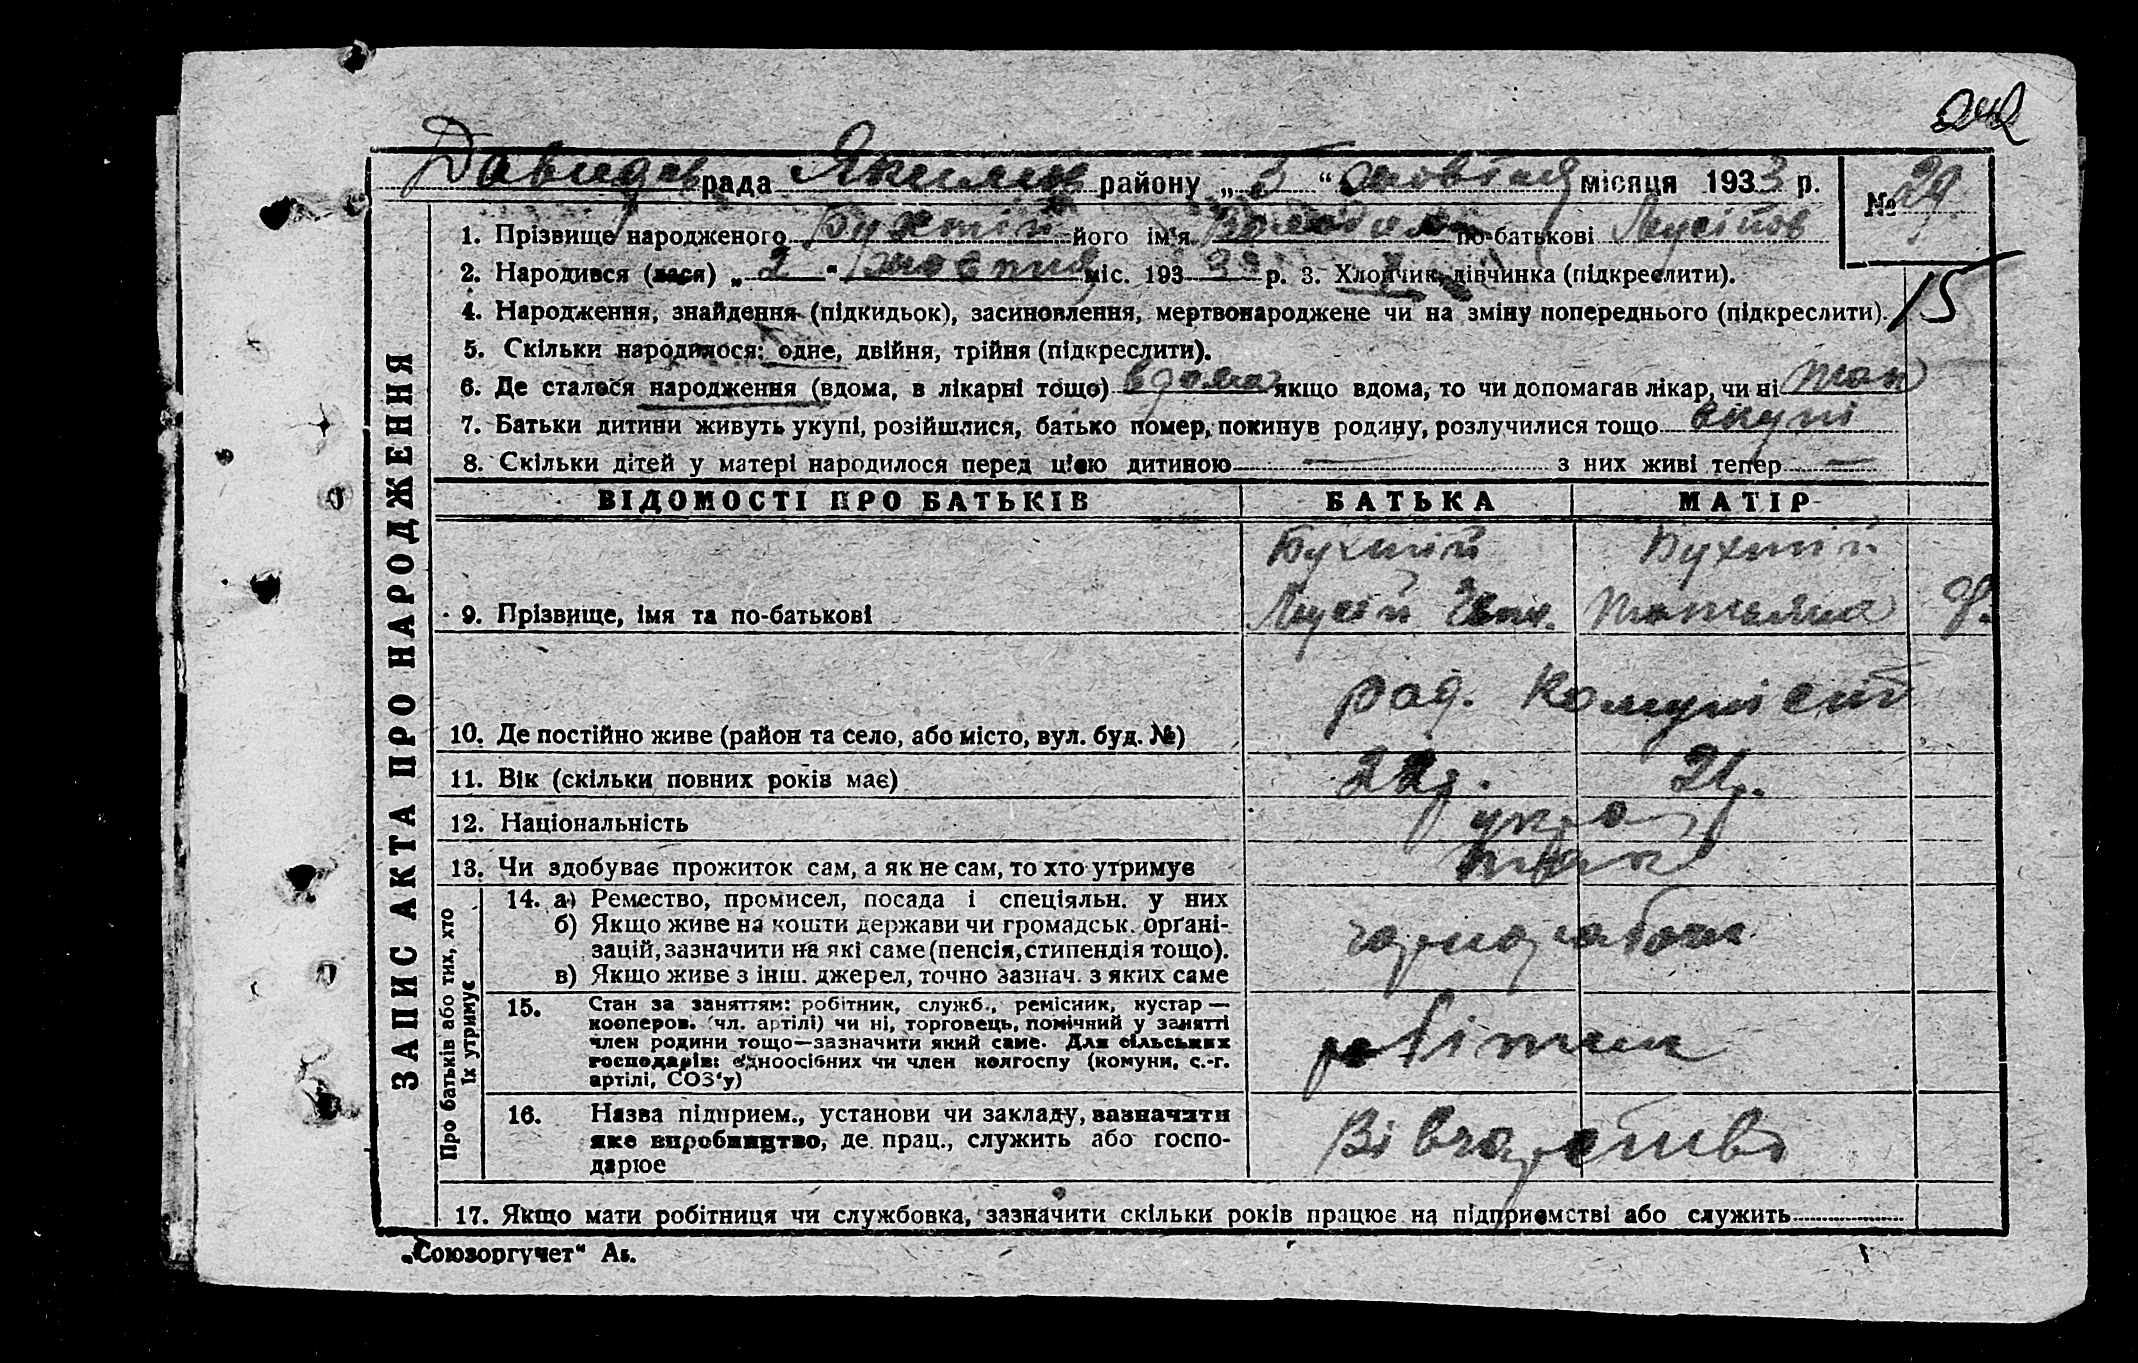 242
Давидів рада Якимів району „ 5 “ жовтня місяця 1933 р. № 29
1. Прізвище народженого Бухтій його ім'я Володимир по-батькові Мусійов
2. Народився (лася) „ 2 “ жовтня міс. 193 33 р. 3. Хлопчик, дівчинка (підкреслити).
4. Народження, знайдення (підкидьок), засиновлення, мертвонароджене чи на зміну попереднього (підкреслити). 15
5. Скільки народилося: одне, двійня, трійня (підкреслити).
6. Де сталося народження (вдома, в лікарні тощо) вдома якщо вдома, то чи допомагав лікар, чи ні так
7. Батьки дитини живуть укупі, розійшлися, батько помер, покинув родину, розлучилися тощо вкупі
8. Скільки дітей у матері народилося перед цією дитиною — з них живі тепер —
ЗАПИС АКТА ПРО НАРОДЖЕННЯ
ВІДОМОСТІ ПРО БАТЬКІВ БАТЬКА МАТІР
Бухтій Бухтій
9. Прізвище, імя та по-батькові Мусій Татьяна Ф.
10. Де постійно живе (район та село, або місто, вул. буд. №) рад. Комуніст
11. Вік (скільки повних років має) 22р. 21р.
12. Національність укра
13. Чи здобуває прожиток сам, а як не сам, то хто утримує так
Про батьків або тих, хто
їх утримує
14. а) Ремество, промисел, посада і спеціяльн. у них
б) Якщо живе на кошти держави чи громадськ. орґані-
зацій, зазначити на які саме (пенсія, стипендія тощо). чорнорабоч
в) Якщо живе з інш. джерел, точно зазнач. з яких саме
15. Стан за заняттям: робітник, служб., ремісник, кустар —
кооперов. (чл. артілі) чи ні, торговець, помічний у занятті
член родини тощо—зазначити який саме. Для сільських робітник
господарів: одноосібних чи член колгоспу (комуни, с.-г.
артілі, СОЗ'у)
16. Назва підприєм., установи чи закладу, зазначити
яке виробництво, де прац., служить або госпо- Вівчарство
дарює
17. Якщо мати робітниця чи службовка, зазначити скільки років працює на підприємстві або служить
„Союзоргучет“